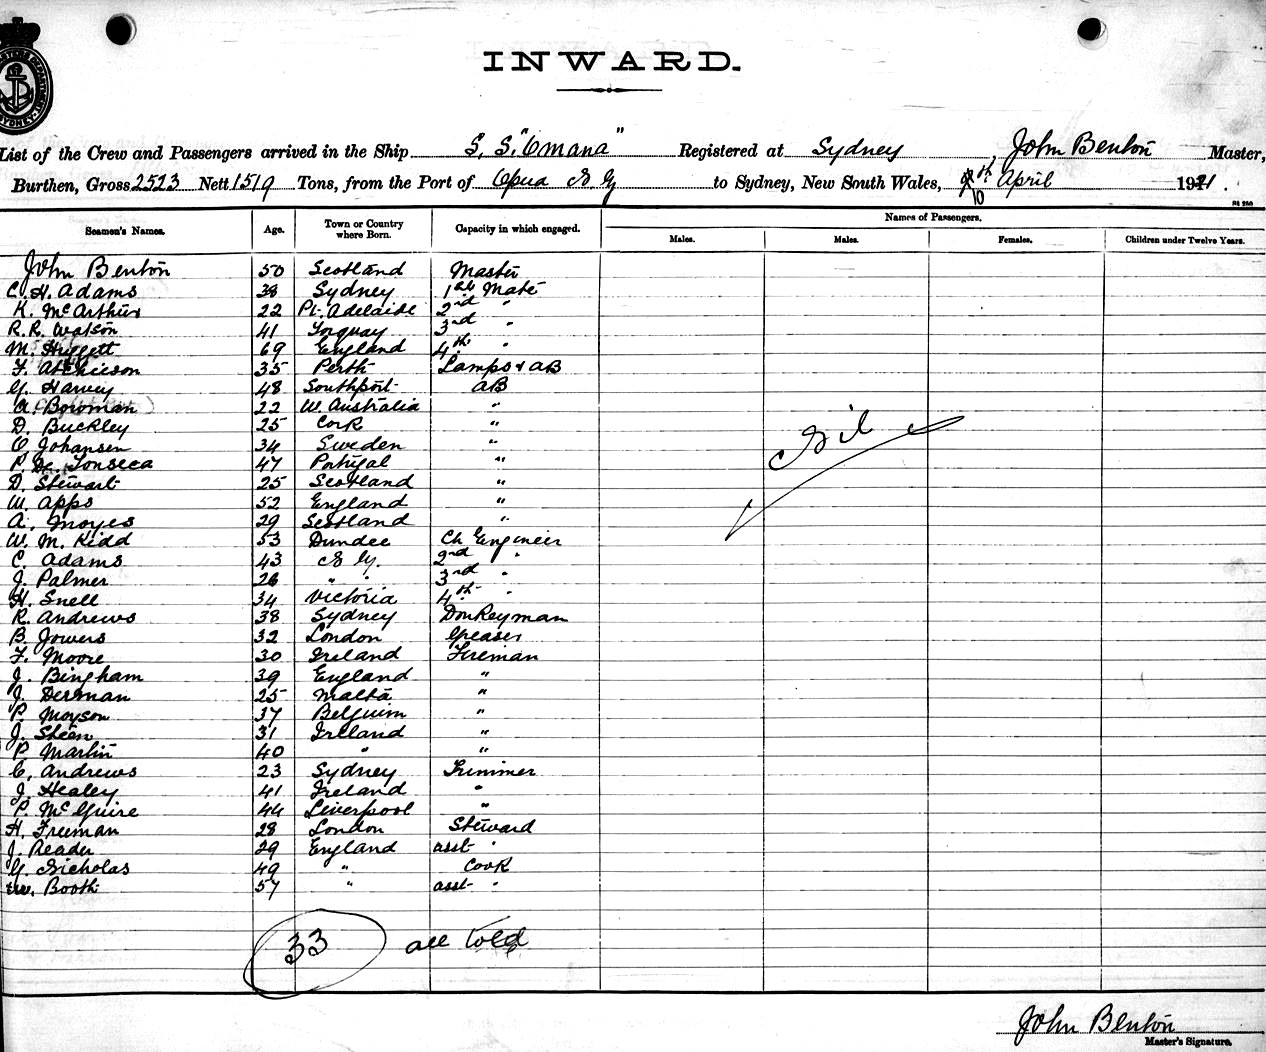 INWARD.
List of the Crew and Passengers arrived in the Ship S. S. "Omana" Registered at Sydney John Benton Master,
Burthen, Gross 2523 Nett 1519 Tons, from the Port of Opua N Z to Sydney, New South Wales, 10th April 1921.
Seamen's Names. Age. Town or Country where Born. Capacity in which engaged. Names of Passengers.
Males. Males. Females. Children under Twelve Years.
John Benton 50 Scotland Master
C. H. Adams 38 Sydney 1st Mate
K. McArthur 22 Pt. Adelaide 2nd "
R. R. Watson 41 Torquay 3rd "
M. Huggett 69 England 4th "
F. 35 Perth Lamps & AB
G. Harvey 48 Southport AB
A. Bowman 22 W. Australia "
D. Buckley 25 Cork "
O Johansen 34 Sweden "
P. De Fonseca 47 Portugal "
D. Stewart 25 Scotland "
W. Apps 52 England "
A. Moyes 29 Scotland "
W. M. Kidd 53 Dundee Ch Engineer
C. Adams 43 N Z. 2nd "
J. Palmer 26 " " 3rd "
H. Snell 34 Victoria 4th "
R. Andrews 38 Sydney Donkeyman
B. Jowers 32 London Greaser
F. Moore 30 Ireland Fireman
J. Bingham 39 England "
J. Derman 25 Malta "
P. Moyson 37 Belguim "
J. Steen 31 Ireland "
P. Martin 40 " "
C. Andrews 23 Sydney Trimmer
J. Healey 41 Ireland "
P. McGuire 44 Liverpool "
H. Freeman 28 London Steward
J. Reader 29 England asst "
G. Nicholas 49 " Cook
W. Booth 57 " asst "
Nil
33 all told
John Benton
Master's Signature.